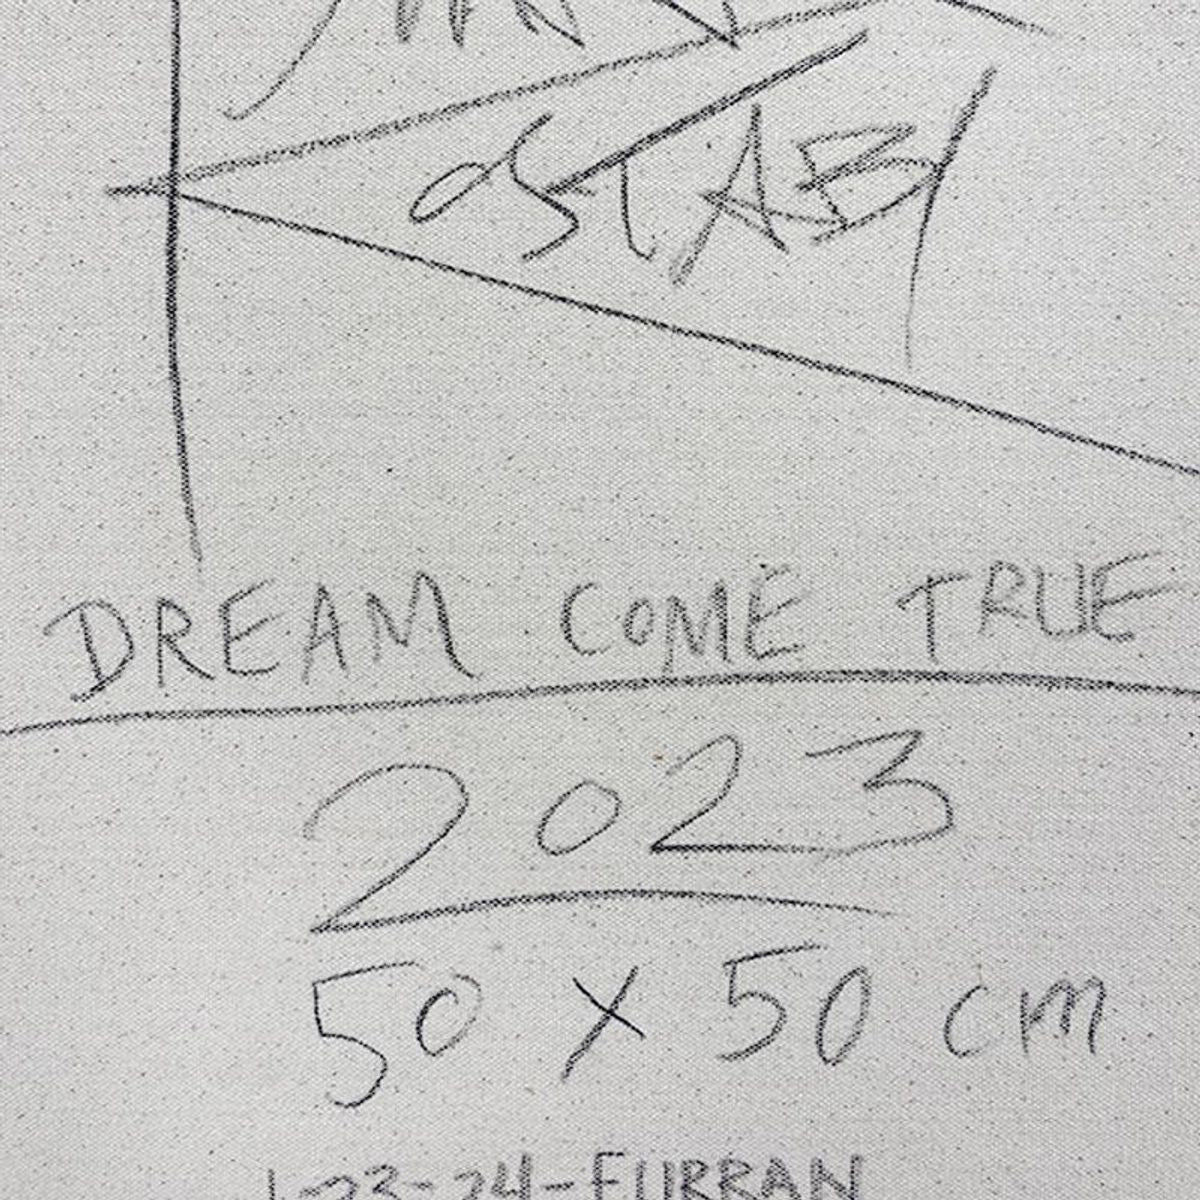 OSTAB
DREAM COME TRUE
2023
50 x 50 cm
1-23-24-FURRAN